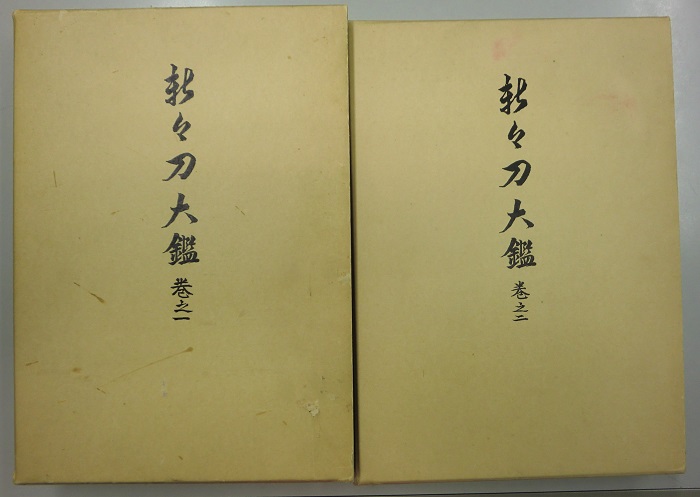 新々刀大鑑 巻之一
新々刀大鑑 巻之二